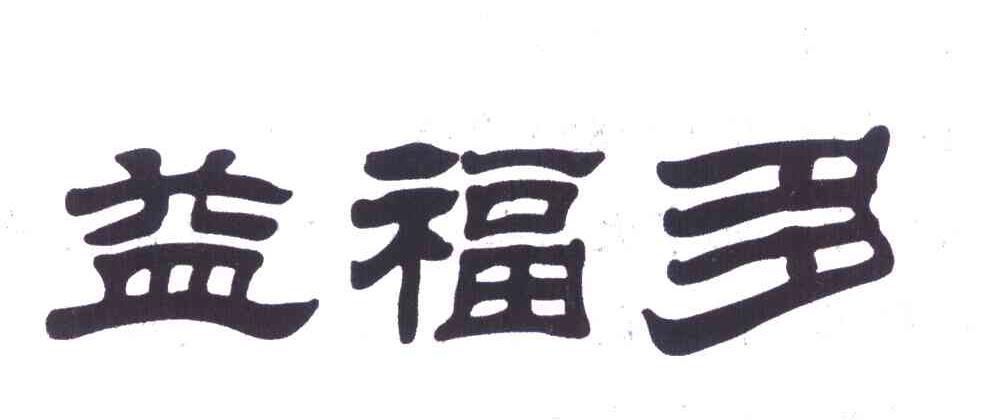 益福多